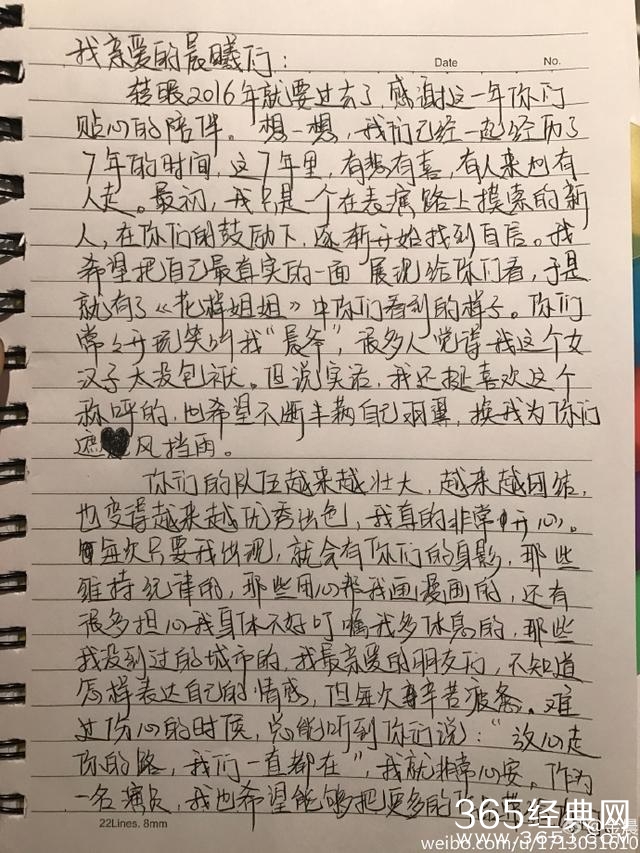 我亲爱的晨曦们：
Date No.
转眼2016年就要过去了，感谢这一年你们
贴心的陪伴。想一想，我们已经一起经历了
7年的时间，这7年里，有悲有喜，有人来也有
人走。最初，我只是一个在表演路上摸索的新
人，在你们的鼓励下，逐渐开始找到自信。我
希望把自己最真实的一面展现给你们看，于是
就有了《花样姐姐》中你们看到的样子。你们
常常开玩笑叫我“晨爷”，很多人觉得我这个女
汉子太没包袱。但说实话，我还挺喜欢这个
称呼的，也希望不断丰满自己羽翼，换我为你们
遮风挡雨。
你们的队伍越来越壮大，越来越团结，
也变得越来越优秀出色，我真的非常开心。
每次只要我出现，就会有你们的身影，那些
维持纪律的，那些用心帮我画漫画的，还有
很多担心我身体不好叮嘱我多休息的，那些
我没到过的城市的，我最亲爱的朋友们，不知道
怎样表达自己的情感，但每次辛苦疲惫、难
过伤心的时候，总能听到你们说：“放心走
你的路，我们一直都在”，我就非常心安。作为
一名演员，我也希望能够把更多的
22Lines. 8mm
365经典网
WWW.365
@金晨
weibo.com/u/1713031610